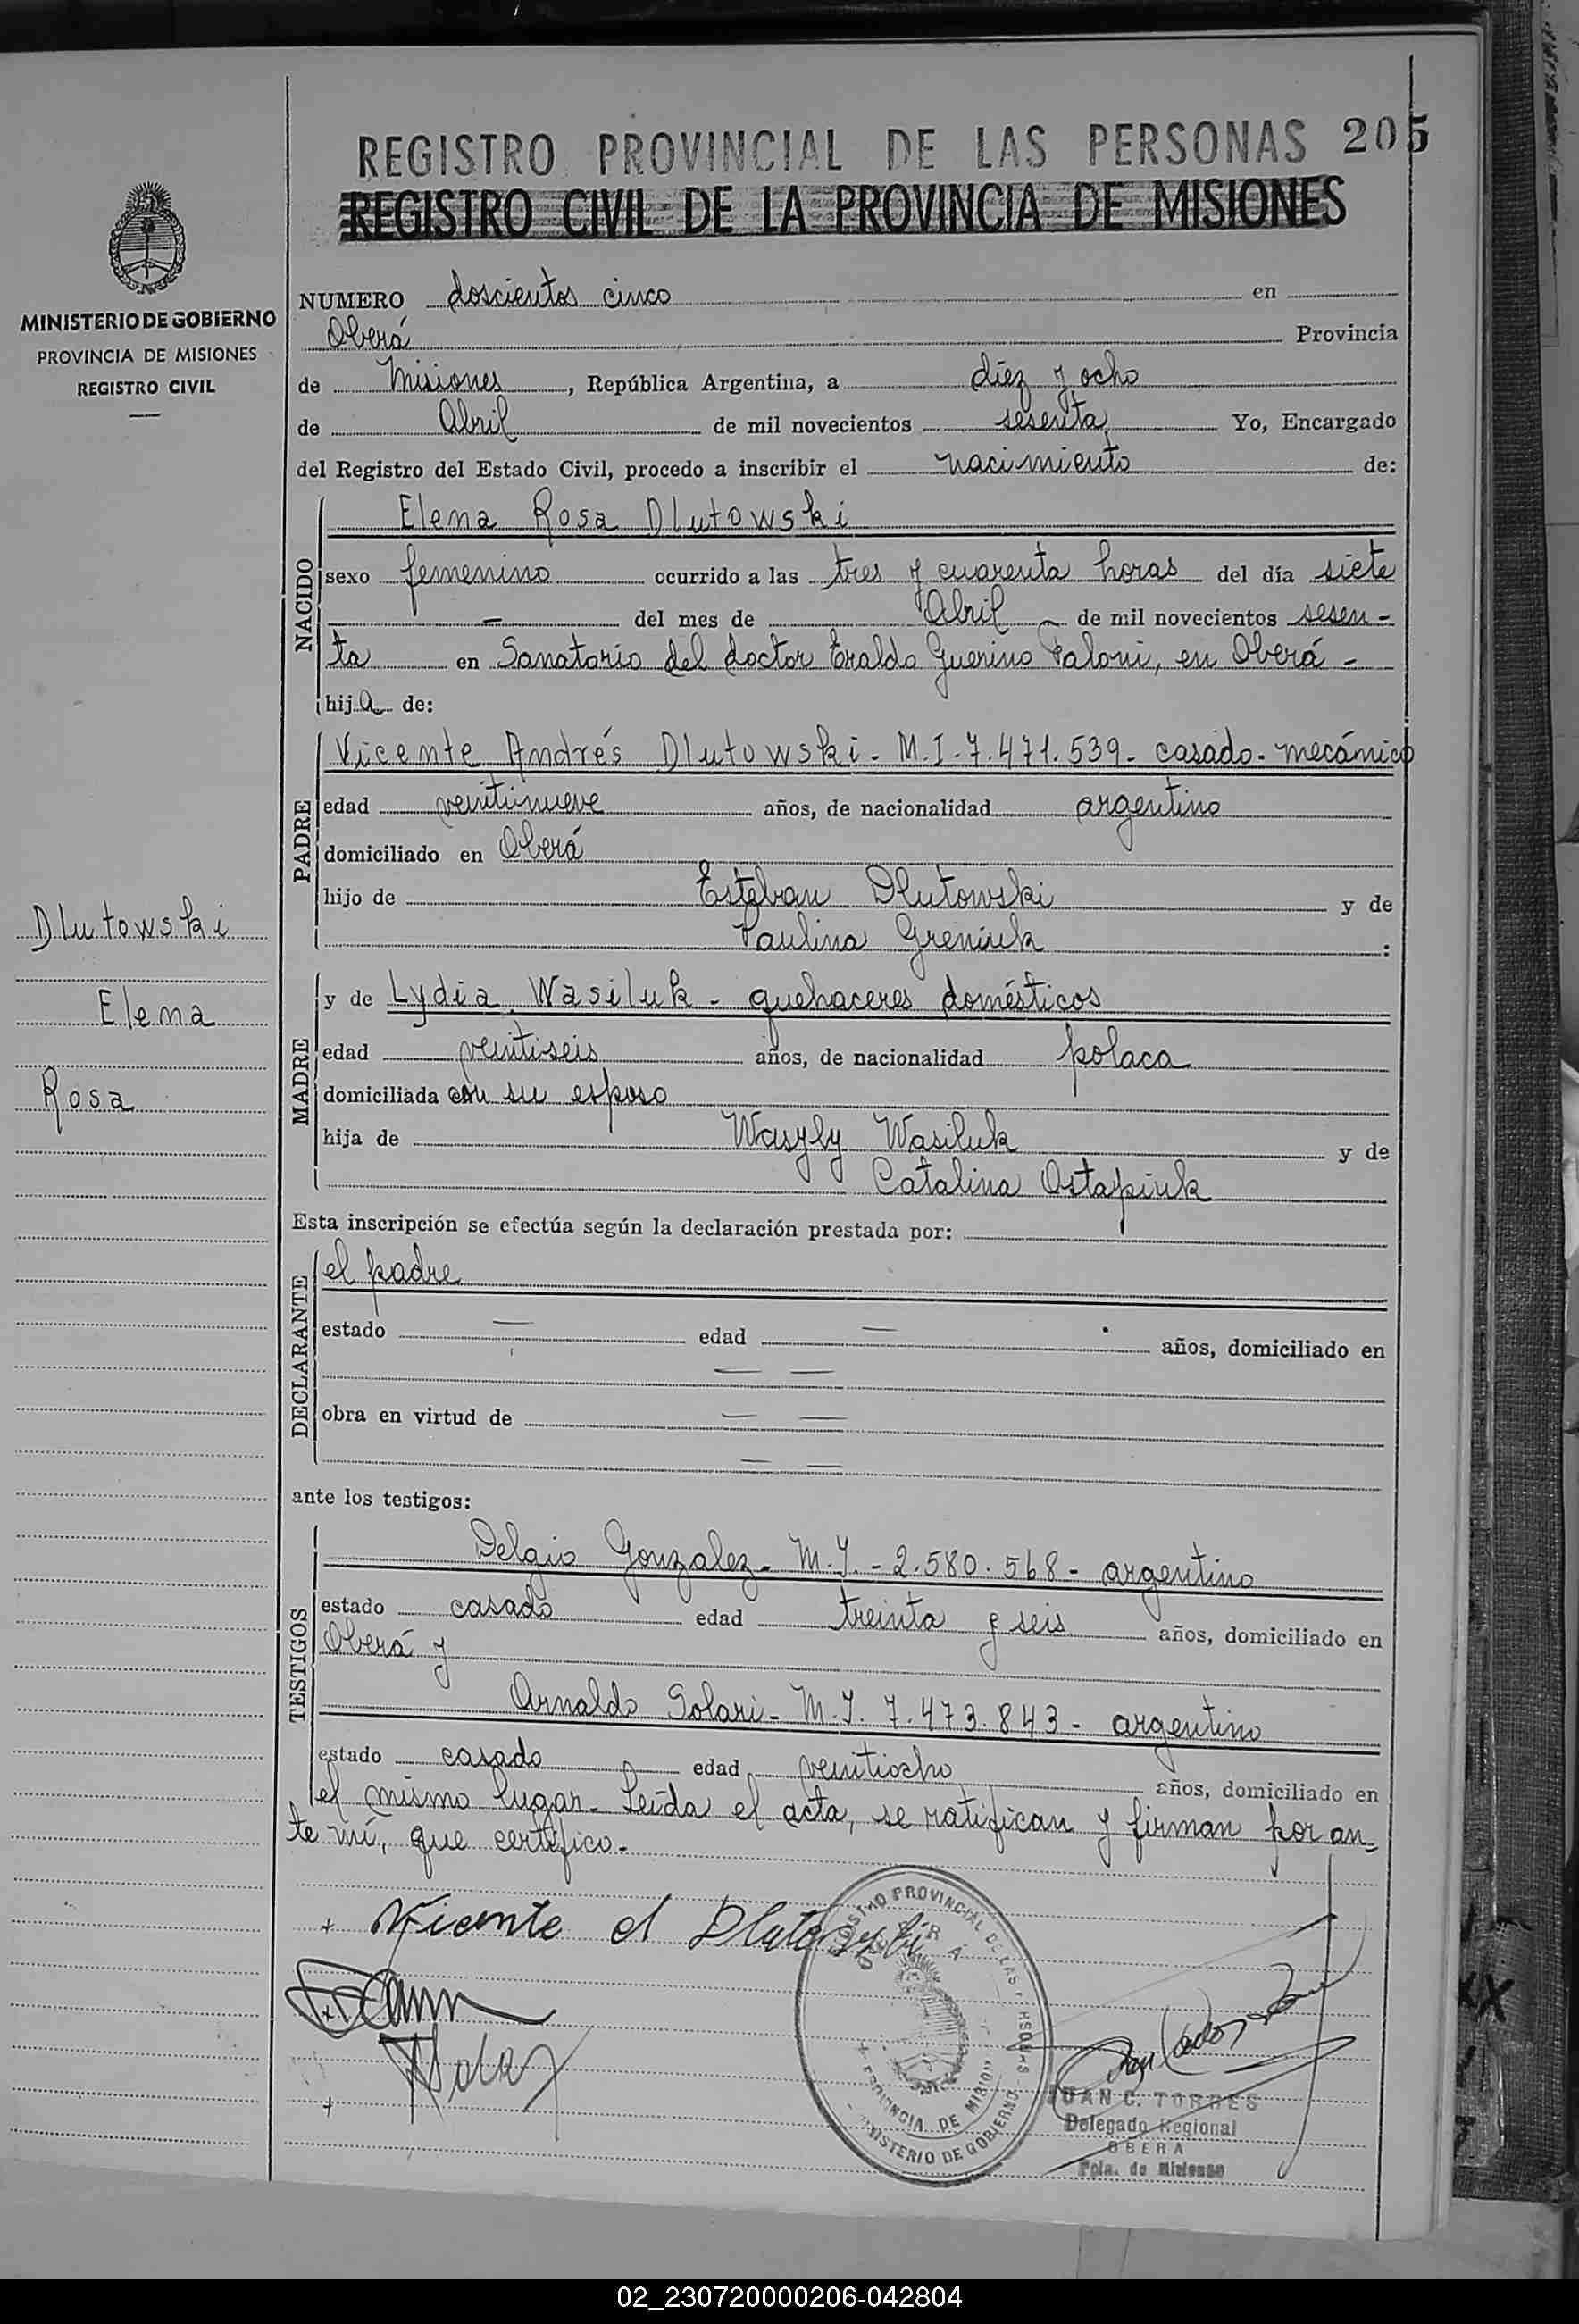 REGISTRO PROVINCIAL DE LAS PERSONAS 205
REGISTRO CIVIL DE LA PROVINCIA DE MISIONES
MINISTERIO DE GOBIERNO
PROVINCIA DE MISIONES
REGISTRO CIVIL
NUMERO doscientos cinco en
Oberá Provincia
de Misiones, República Argentina, a diez y ocho
de Abril de mil novecientos sesenta Yo, Encargado
del Registro del Estado Civil, procedo a inscribir el nacimiento de:
NACIDO
Elena Rosa Dlutowski
sexo femenino ocurrido a las tres y cuarenta horas del día siete
— del mes de Abril de mil novecientos sesen-
ta en Sanatorio del doctor Eraldo Guerino Paloni, en Oberá -
hija de:
PADRE
Vicente Andrés Dlutowski - M.I. 7.471.539 - casado - mecánico
edad veintinueve años, de nacionalidad argentino
domiciliado en Oberá
hijo de Esteban Dlutowski y de
Paulina Greniuk :
Dlutowski
Elena
Rosa
MADRE
y de Lydia Wasiluk - quehaceres domésticos
edad veintiseis años, de nacionalidad polaca
domiciliada con su esposo
hija de Wasyly Wasiluk y de
Catalina Ostapiuk
Esta inscripción se efectúa según la declaración prestada por:
DECLARANTE
el padre
estado — edad — años, domiciliado en
— —
obra en virtud de — —
— —
ante los testigos:
TESTIGOS
Delgio Gonzalez - M.I. - 2.580.568 - argentino
estado casado edad treinta y seis años, domiciliado en
Oberá y
Arnaldo Solari - M.I. 7.473.843 - argentino
estado casado edad veintiocho años, domiciliado en
el mismo lugar - Leída el acta, se ratifican y firman por an-
te mí, que certifico.
Vicente A Dlutowski
REGISTRO PROVINCIAL DE LAS PERSONAS
OBERÁ
PROVINCIA DE MISIONES
MINISTERIO DE GOBIERNO
JUAN C. TORRES
Delegado Regional
OBERA
Pcia. de Misiones
02_230720000206-042804